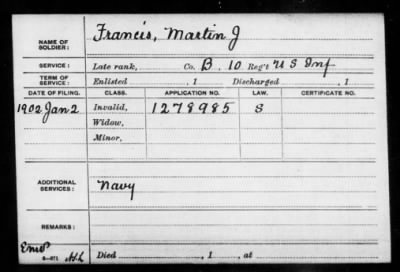 NAME OF SOLDIER: Francis, Martin J
SERVICE: Late rank, Co. B, 10 Reg't U S Inf
TERM OF SERVICE: Enlisted , 1 Discharged , 1
DATE OF FILING. CLASS. APPLICATION NO. LAW. CERTIFICATE NO.
1902 Jan 2 Invalid, 1278985 S
Widow,
Minor,
ADDITIONAL SERVICES: Navy
REMARKS:
Died , 1 , at